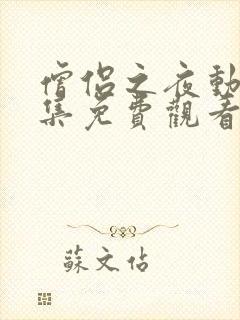 僧侶之夜動
集免費觀看
蘇文佔